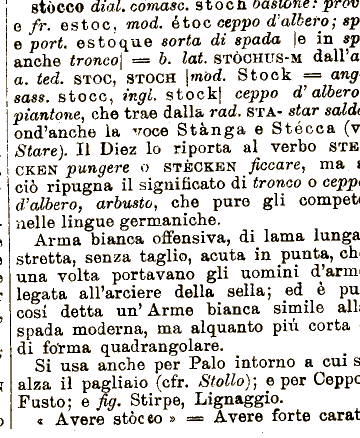 stòcco dial. comasc. stoch bastone: prov
e fr. estoc, mod. étoc ceppo d'albero; sp
e port. estoque sorta di spada |e in sp
anche tronco| = b. lat. STÒCHUS-M dall'a
a. ted. STOC, STOCH |mod. Stock = ang
sass. stocc, ingl. stock| ceppo d'albero
piantone, che trae dalla rad. STA- star salda
ond'anche la voce Stànga e Stécca (v
Stare). Il Diez lo riporta al verbo STE
CKEN pungere o STÈCKEN ficcare, ma
ciò ripugna il significato di tronco o ceppo
d'albero, arbusto, che pure gli compet
nelle lingue germaniche.
Arma bianca offensiva, di lama lunga
stretta, senza taglio, acuta in punta, ch
una volta portavano gli uomini d'arme
legata all'arciere della sella; ed è pu
cosí detta un' Arme bianca simile all
spada moderna, ma alquanto piú corta
di forma quadrangolare.
Si usa anche per Palo intorno a cui s
alza il pagliaio (cfr. Stollo); e per Ceppo
Fusto; e fig. Stirpe, Lignaggio.
« Avere stòcco » = Avere forte carat